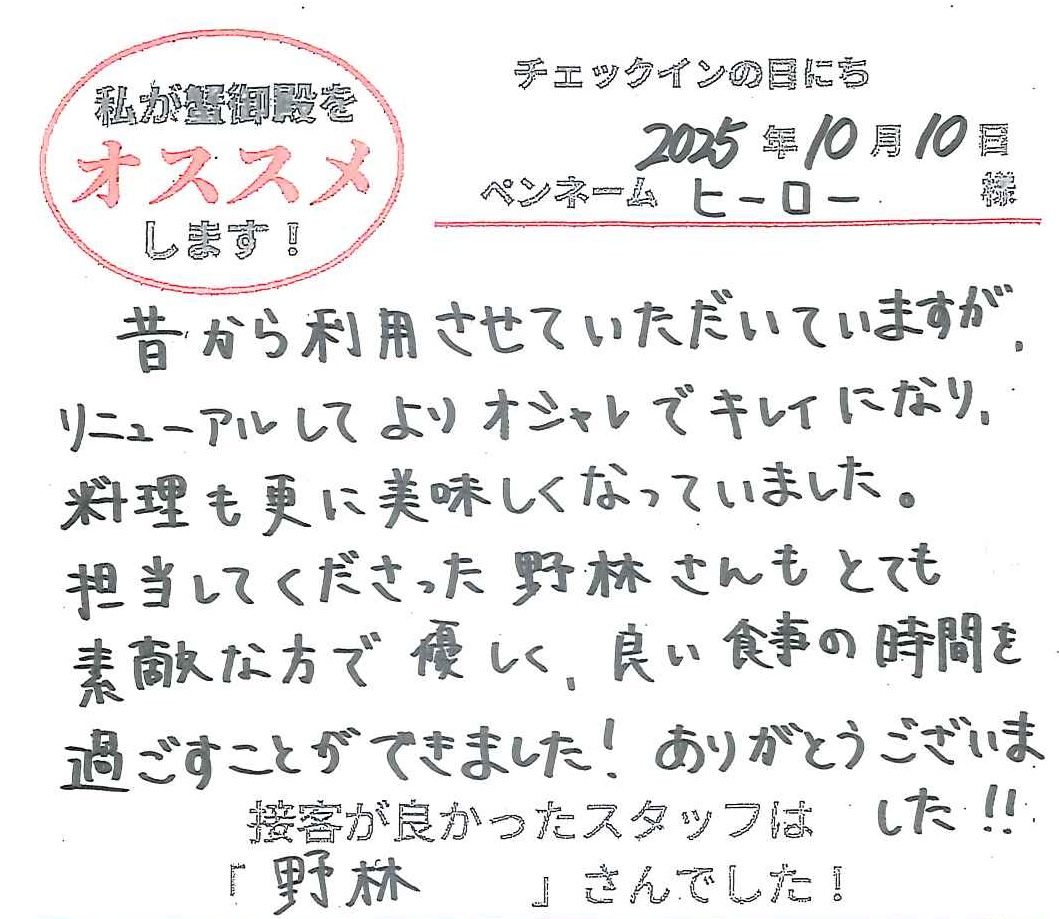 私が蟹御殿を
オススメ
します！
チェックインの日にち
2025年10月10日
ペンネーム ヒーロー 様
昔から利用させていただいていますが、
リニューアルしてよりオシャレでキレイになり、
料理も更に美味しくなっていました。
担当してくださった野林さんもとても
素敵な方で優しく、良い食事の時間を
過ごすことができました！ありがとうございま
した!!
接客が良かったスタッフは
「野林」さんでした！